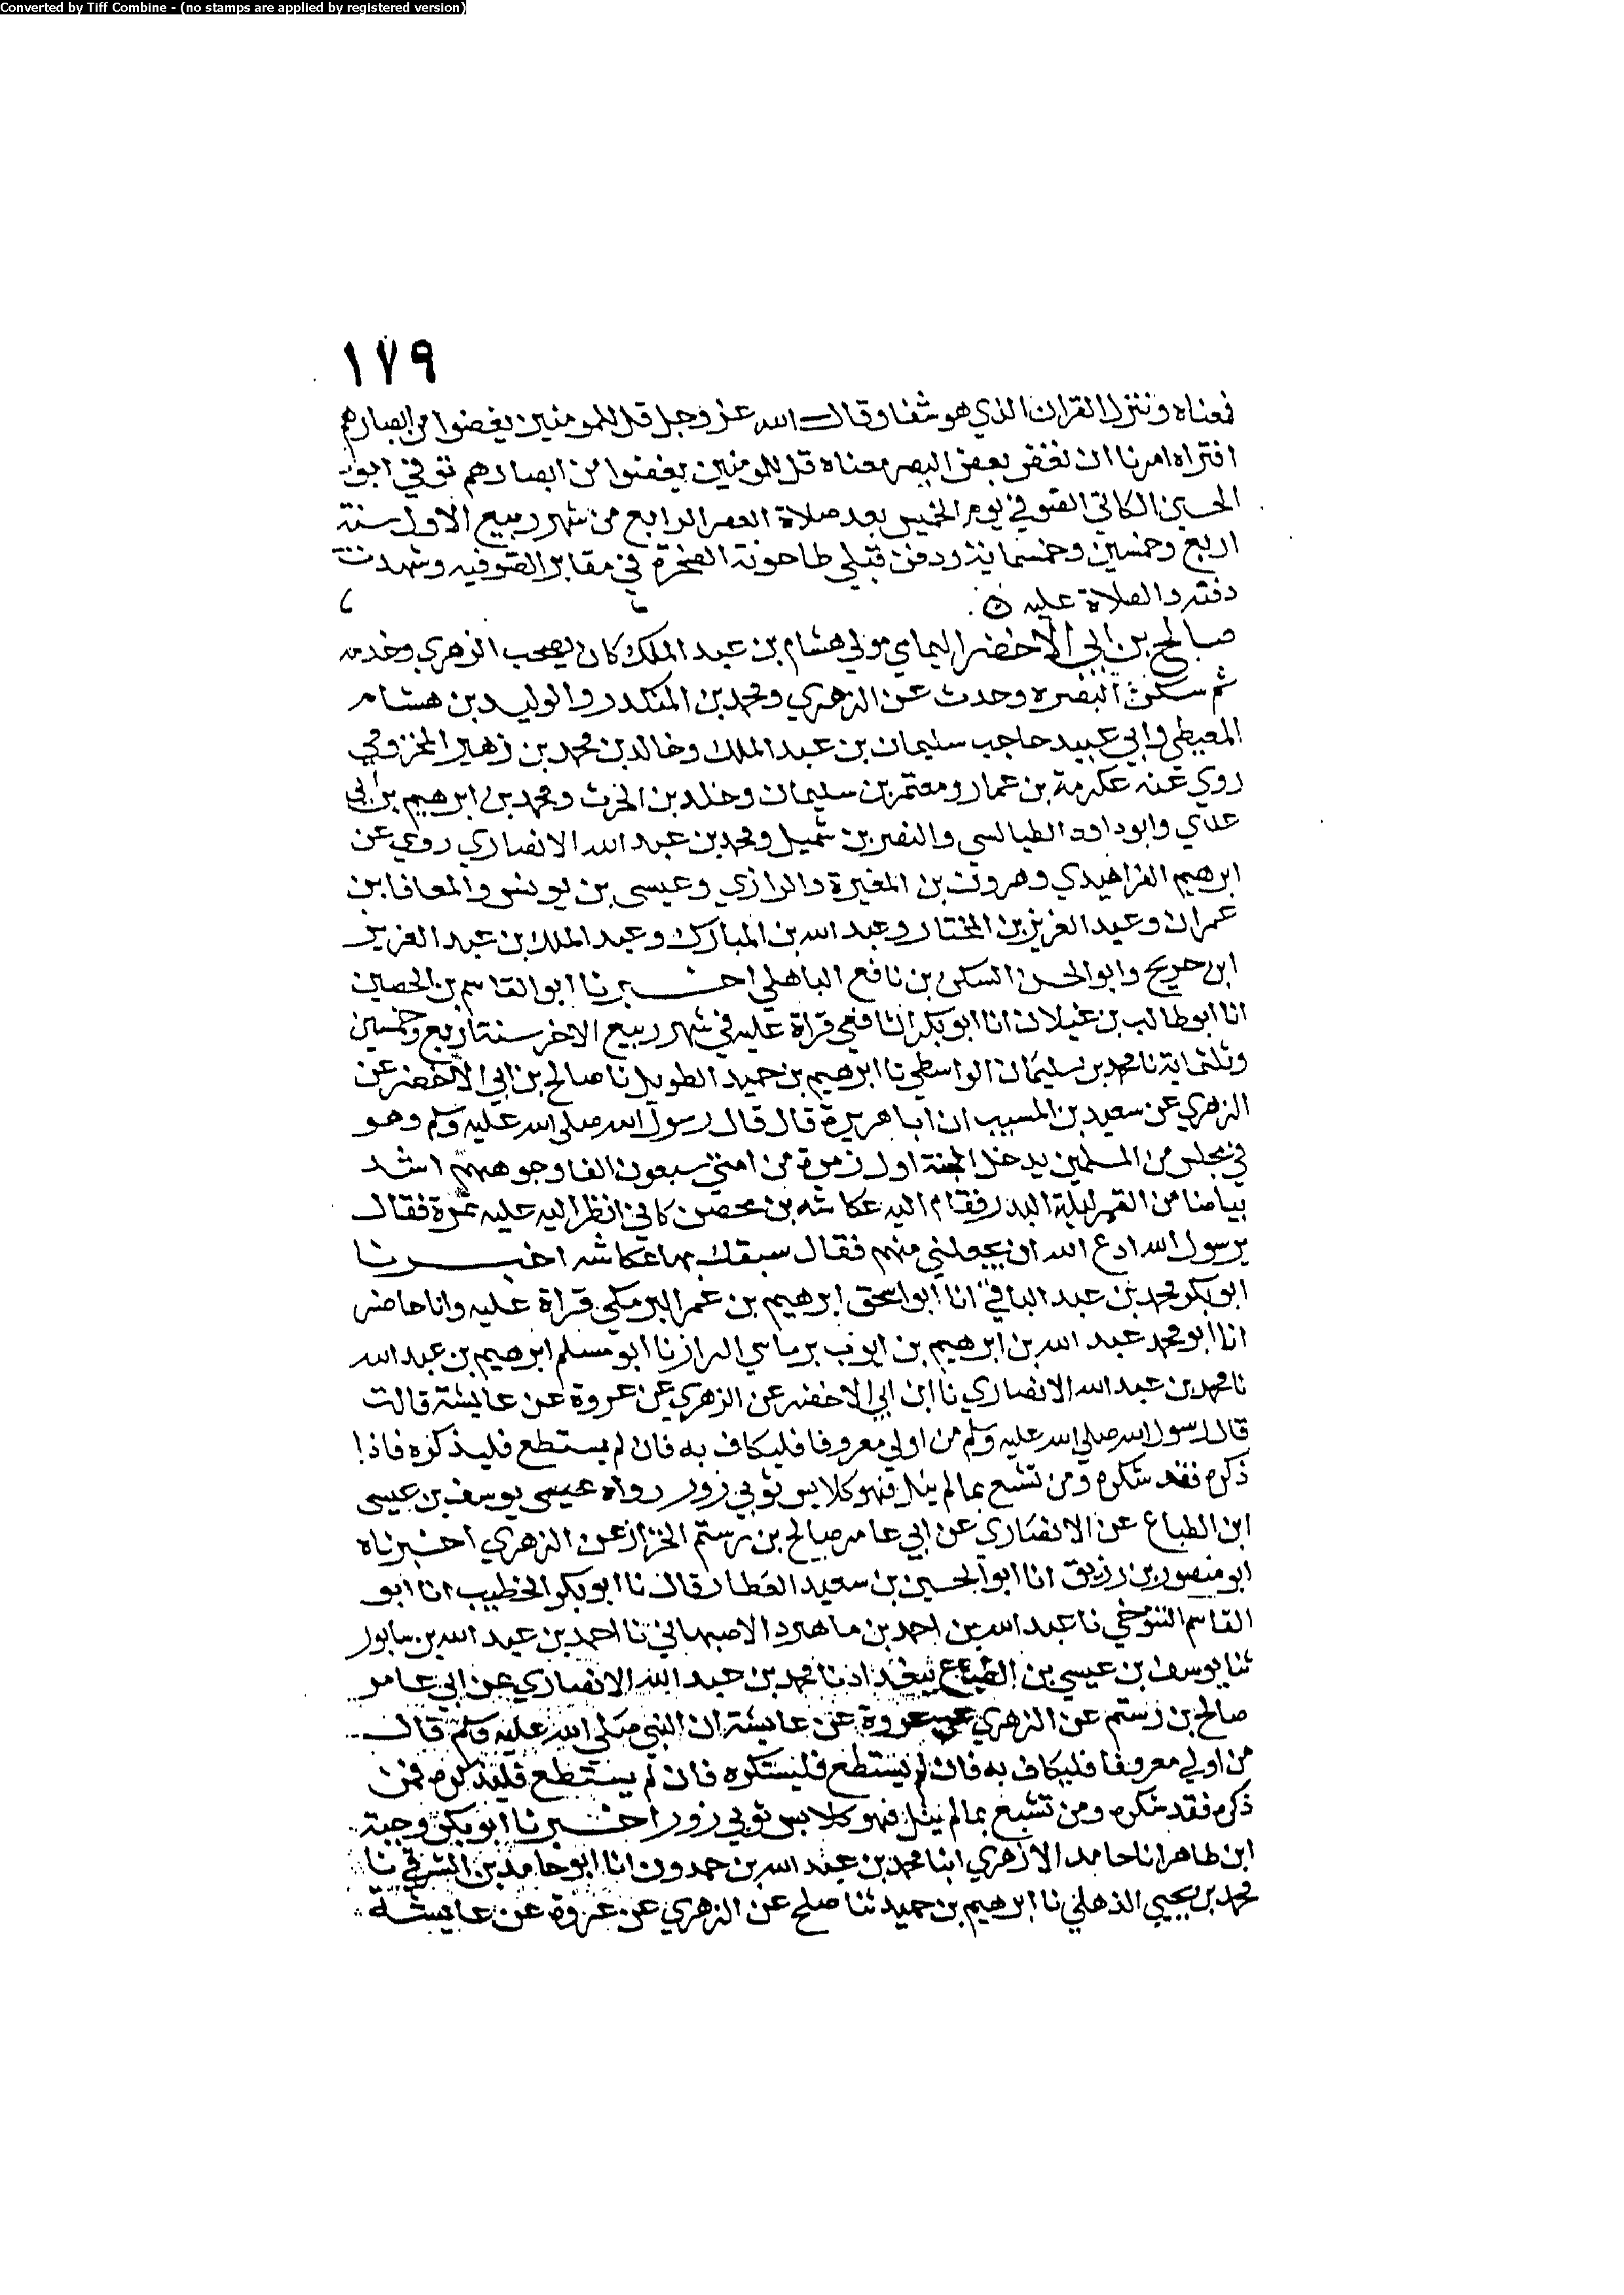 Converted by Tiff Combine - (no stamps are applied by registered version)
١٧٩
فمعناه وننزل القران الذي هو شفا وقال الله عز وجل قل للمومنين يغضوا من ابصارهم
افتراه امرنا ان نغض بعض البصر معناه قل للمومنين يغضوا من ابصارهم توفي ابو
الحسين الكاتي الصوفي يوم الخميس بعد صلاة العصر الرابع من شهر ربيع الاول سنة
اربع وخمسين وخمسماية ودفن قبلي طاحونة الصخرة في مقابر الصوفيه وشهدت
دفنه والصلاة عليه
صالح بن ابي الاخضر اليمامي مولي هشام بن عبد الملك كان يصحب الزهري وخدمه
ثم سكن البصره وحدث عن الزهري ومحمد بن المنكدر والوليد بن هشام
المعيطي وابي عبيد حاجب سليمان بن عبد الملك وخالد بن محمد بن زهير المخزومي
روي عنه عكرمة بن عمار ومعتمر بن سليمان وخلد بن الحرث ومحمد بن ابرهيم بن ابي
عدي وابو داود الطيالسي والنضر بن شميل ومحمد بن عبد الله الانصاري روي عن
ابرهيم الفراهيدي وهرون بن المغيرة والرازي وعيسى بن يونس والمعافا بن
عمران وعبد العزيز بن المختار وعبد الله بن المبارك وعبد الملك بن عبد العزيز
ابن جريج وابو الحسن السكن بن نافع الباهلي اخبرنا ابو القاسم بن الحصين
انا ابو طالب بن غيلان انا ابو بكر الشافعي قراة عليه في شهر ربيع الاخر سنة اربع وخمسين
وثلثماية نا محمد بن سليمان الواسطي نا ابرهيم بن حميد الطويل نا صالح بن ابي الاخضر عن
الزهري عن سعيد بن المسيب ان ابا هريرة قال قال رسول الله صلى الله عليه وسلم وهو
في مجلس من المسلمين يدخل الجنة اول زمرة من امتي سبعون الفا وجوههم اشد
بياضا من القمر ليلة البدر فقام اليه عكاشه بن محصن كاني انظر اليه عليه نمرة فقال
يرسول الله ادع الله ان يجعلني منهم فقال سبقك بها عكاشه اخبرنا
ابو بكر محمد بن عبد الباقي انا ابو اسحق ابرهيم بن عمر البرمكي قراة عليه وانا حاضر
انا ابو محمد عبد الله بن ابرهيم بن ايوب بن ماسي البزاز نا ابو مسلم ابرهيم بن عبد الله
نا محمد بن عبد الله الانصاري نا ابن ابي الاخضر عن الزهري عن عروة عن عايشة قالت
قال رسول الله صلي الله عليه وسلم من اولي معروفا فليكاف به فان لم يستطع فليذكره فاذا
ذكره فقد شكره ومن تشبع بما لم ينل فهو كلابس ثوبي زور رواه عيسى يوسف بن عيسى
ابن الطباع عن الانصاري عن ابي عامر صالح بن رستم الخزاز عن الزهري اخبرناه
ابو منصور بن رزيق انا ابو الحسين بن سعيد العطار قال نا ابو بكر الخطيب انا ابو
القاسم التنوخي نا عبد الله بن احمد بن ماهبرد الاصبهاني نا احمد بن عبد الله بن سابور
ثنا يوسف بن عيسي بن الطباع ببغداد نا محمد بن عبد الله الانصاري عن ابي عامر
صالح بن رستم عن الزهري عن عروة عن عايشة ان النبي صلى الله عليه وسلم قال
من اولي معروفا فليكاف به فان لم يستطع فليشكره فان لم يستطع فليذكره فمن
ذكره فقد شكره ومن تشبع بما لم ينل فهو كلابس ثوبي زور اخبرنا ابو بكر وجيه
ابن طاهر انا حامد الازهري ابنا محمد بن عبد الله بن حمدون انا ابو حامد بن الشرقي نا
محمد بن يحيي الذهلي نا ابرهيم بن حميد ثنا صلح عن الزهري عن عروة عن عايشة